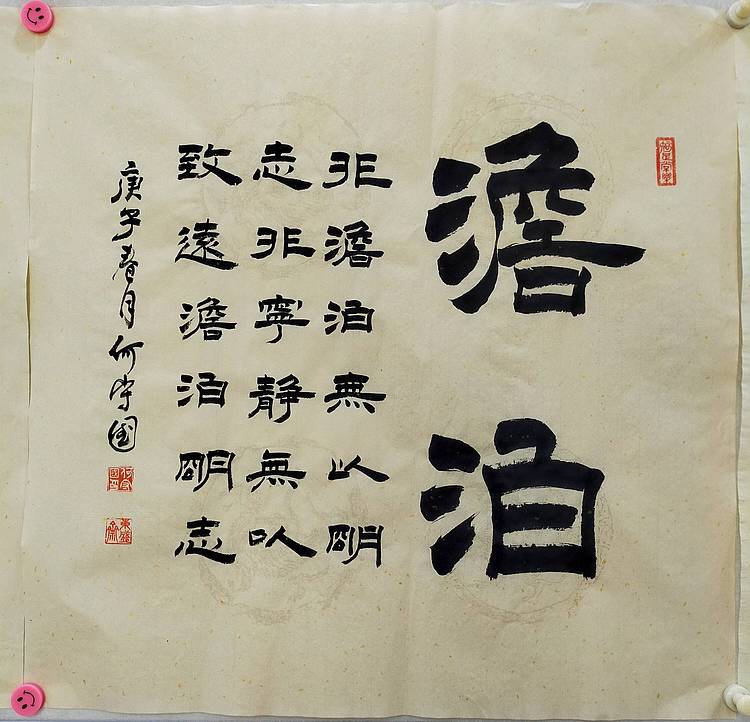 澹泊
非澹泊無以明
志非寧靜無以
致遠澹泊明志
庚子春月何守國